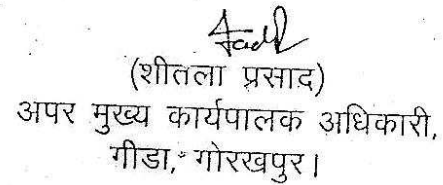 (शीतला प्रसाद)
अपर मुख्य कार्यपालक अधिकारी,
गीडा, गोरखपुर।